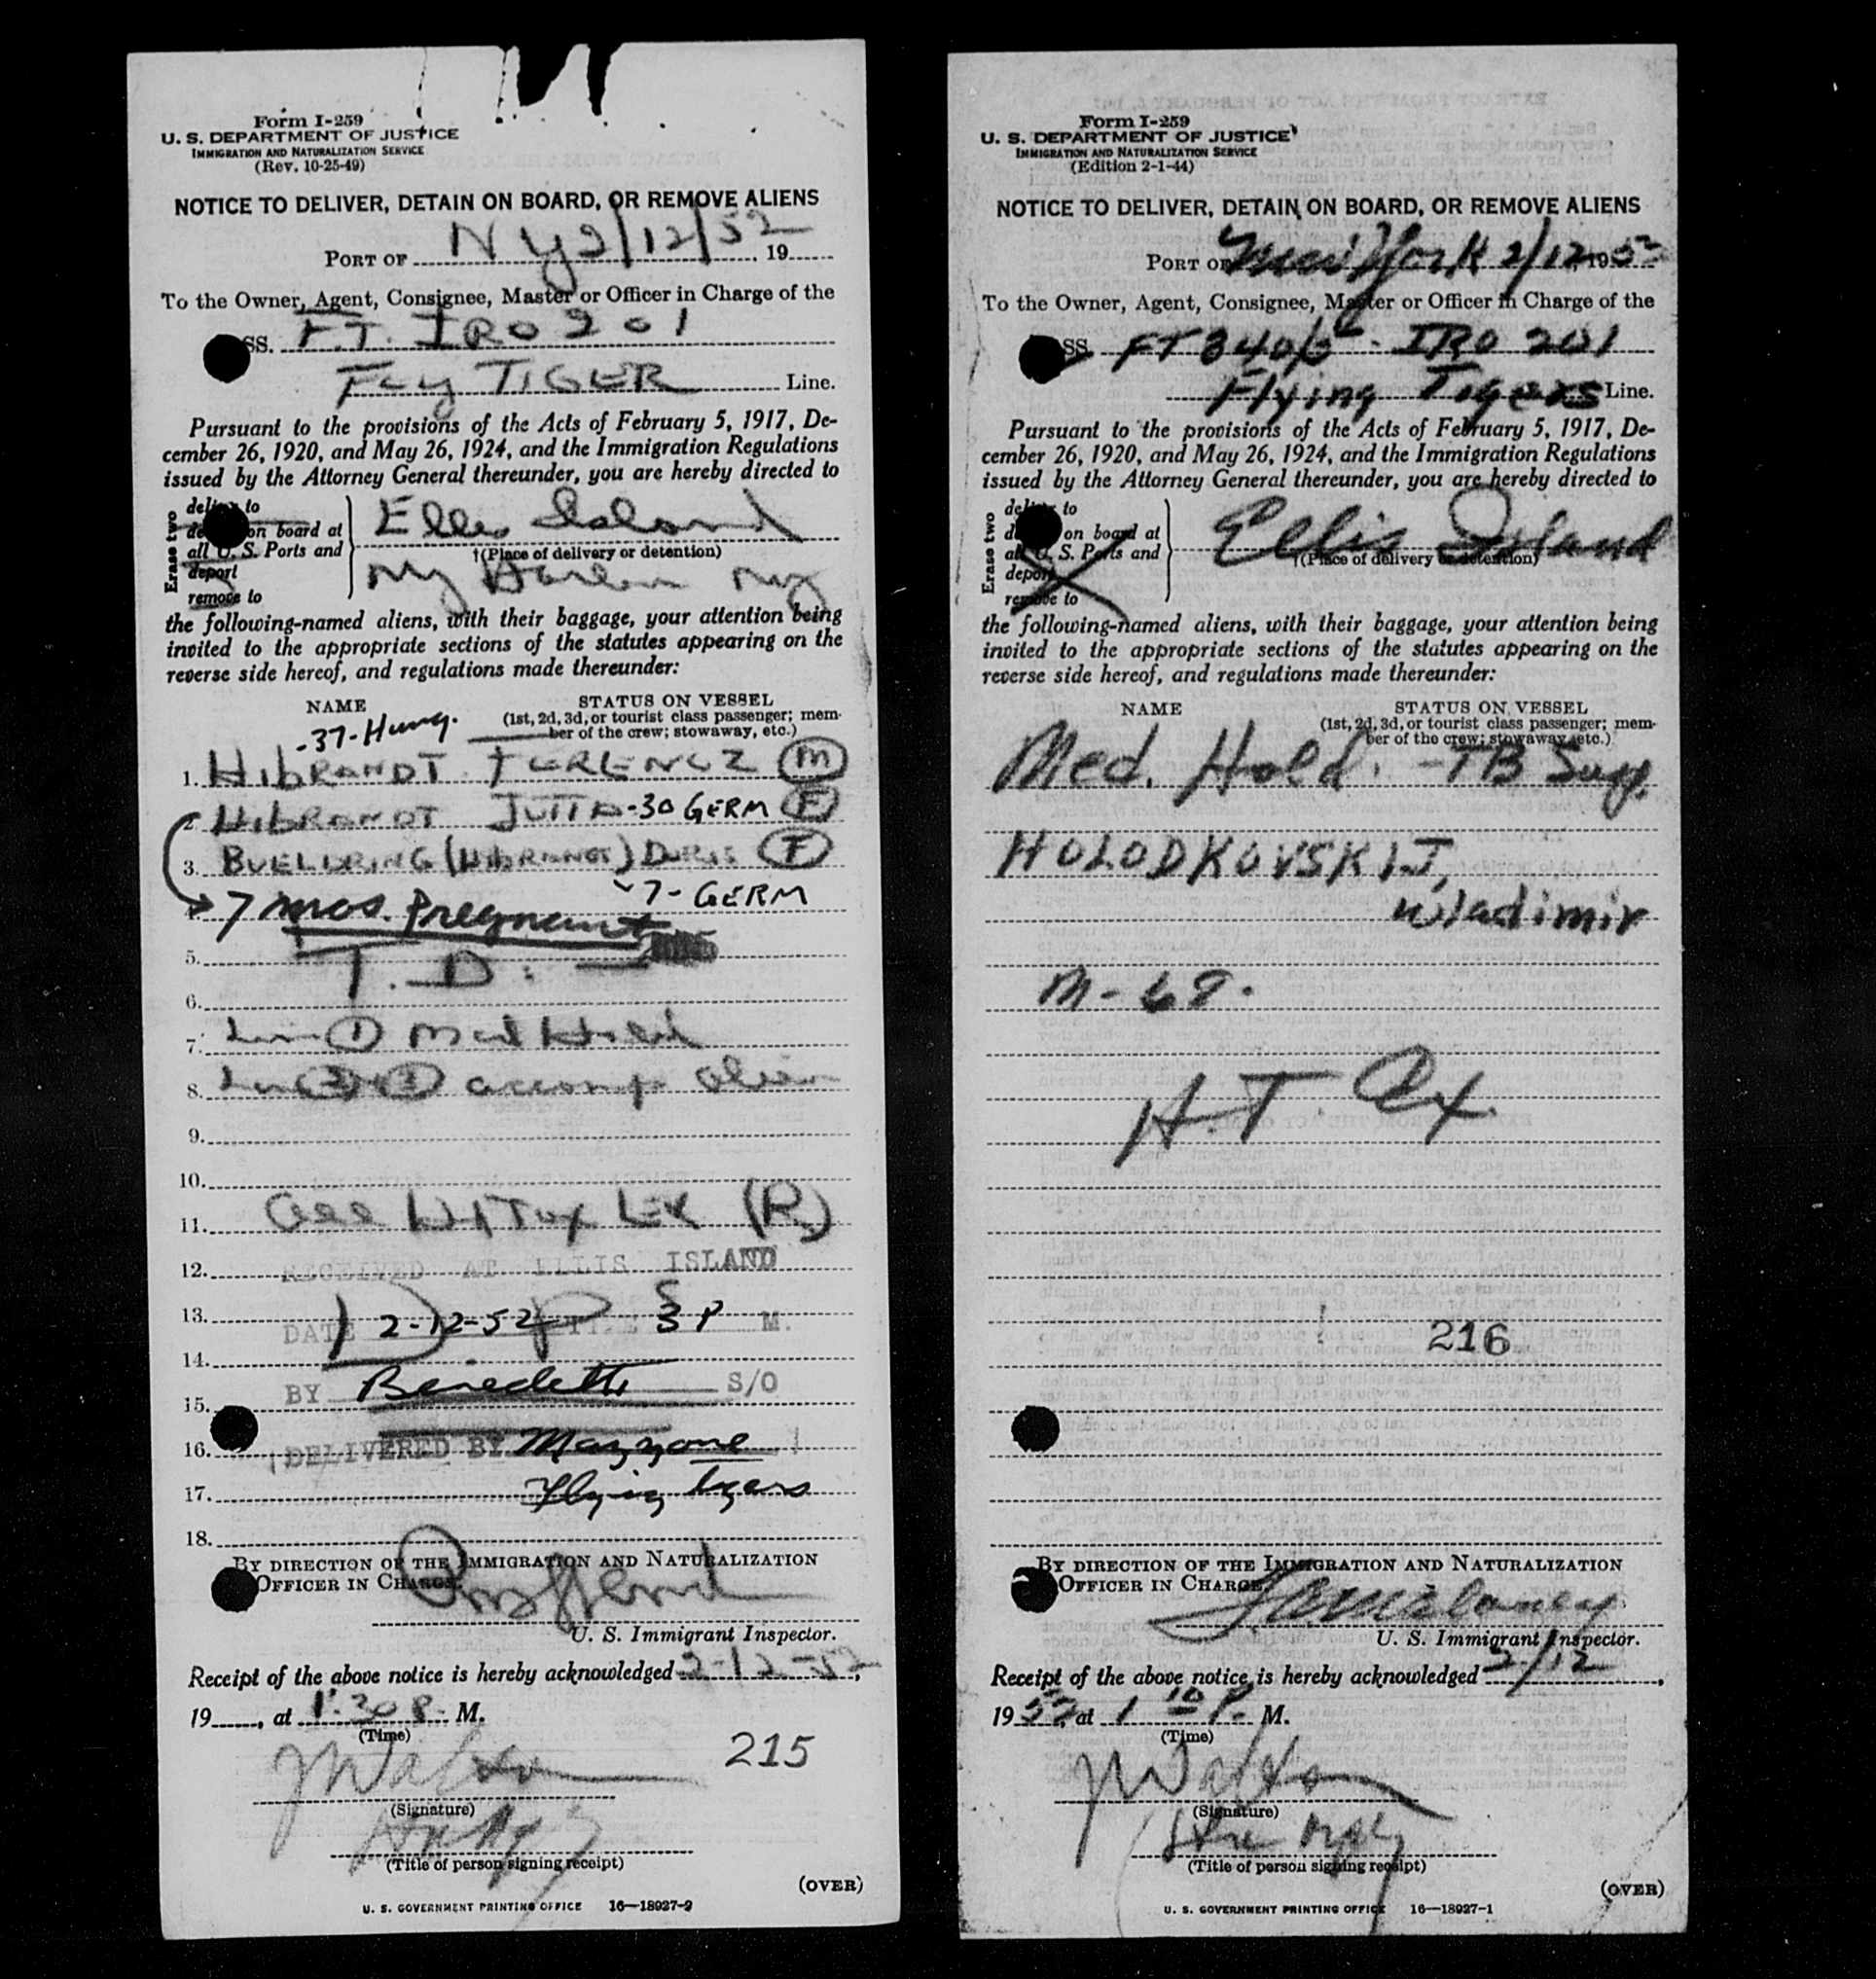 Form I-259
U. S. DEPARTMENT OF JUSTICE
IMMIGRATION AND NATURALIZATION SERVICE
(Rev. 10-25-49)
NOTICE TO DELIVER, DETAIN ON BOARD, OR REMOVE ALIENS
PORT OF NY 2/12/52, 19
To the Owner, Agent, Consignee, Master or Officer in Charge of the
SS. F.T. IRO 201
Fly TIGER Line.
Pursuant to the provisions of the Acts of February 5, 1917, De-
cember 26, 1920, and May 26, 1924, and the Immigration Regulations
issued by the Attorney General thereunder, you are hereby directed to
Erase two
deliver to
on board at
all U. S. Ports and
deport
remove to
Ellis Island
†(Place of delivery or detention)
NY
the following-named aliens, with their baggage, your attention being
invited to the appropriate sections of the statutes appearing on the
reverse side hereof, and regulations made thereunder:
NAME
STATUS ON VESSEL
(1st, 2d, 3d, or tourist class passenger; mem-
ber of the crew; stowaway, etc.)
-37-Hung.
1. HIBRANDT FERENCZ M
2 HIBRANDT JUTTA-30 GERM F
3. BUELDRING (HIBRANDT) DORIS F
7- GERM
7 mos. Pregnant
5. T. D. :
6.
7. 1 Med Hold
8. accomp alien
9.
10.
11. (R)
12. RECEIVED AT ELLIS ISLAND
13. DATE 2-12-52 TIME 5 P M.
14.
BY Benedetti S/O
15.
16. DELIVERED BY Mazzone
17. Flying tigers
18.
BY DIRECTION OF THE IMMIGRATION AND NATURALIZATION
OFFICER IN CHARGE.
U. S. Immigrant Inspector.
Receipt of the above notice is hereby acknowledged 2-12-52,
19, at 1:30 P. M.
(Time)
J Walton
215
(Signature)
(Title of person signing receipt)
(OVER)
U. S. GOVERNMENT PRINTING OFFICE 16—18927-2
Form I-259
U. S. DEPARTMENT OF JUSTICE
IMMIGRATION AND NATURALIZATION SERVICE
(Edition 2-1-44)
NOTICE TO DELIVER, DETAIN ON BOARD, OR REMOVE ALIENS
PORT OF New York 2/12, 1952
To the Owner, Agent, Consignee, Master or Officer in Charge of the
SS. IRO 201
Flying Tigers Line.
Pursuant to the provisions of the Acts of February 5, 1917, De-
cember 26, 1920, and May 26, 1924, and the Immigration Regulations
issued by the Attorney General thereunder, you are hereby directed to
Erase two
deliver to
on board at
all U. S. Ports and
deport
remove to
Ellis Island
†(Place of delivery or detention)
the following-named aliens, with their baggage, your attention being
invited to the appropriate sections of the statutes appearing on the
reverse side hereof, and regulations made thereunder:
NAME
STATUS ON VESSEL
(1st, 2d, 3d, or tourist class passenger; mem-
ber of the crew; stowaway, etc.)
Med. Hold. - TB
HOLODKOVSKIJ,
Wladimir
M- 68.
H.T.
216
BY DIRECTION OF THE IMMIGRATION AND NATURALIZATION
OFFICER IN CHARGE.
U. S. Immigrant Inspector.
Receipt of the above notice is hereby acknowledged 2/12,
1952, at 1 10 P. M.
(Time)
J Walton
(Signature)
(Title of person signing receipt)
(OVER)
U. S. GOVERNMENT PRINTING OFFICE 16—18927-1